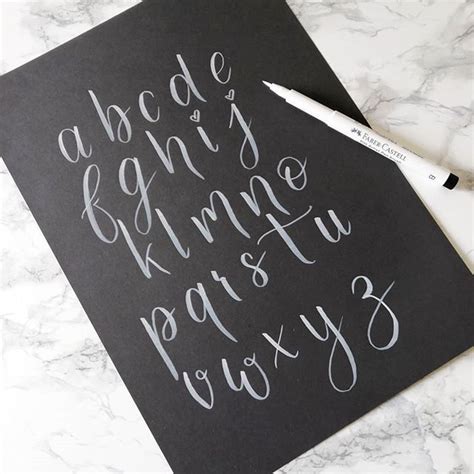 a b c d e
f g h i j
k l m n o
p q r s t u
v w x y z
FABER-CASTELL
B